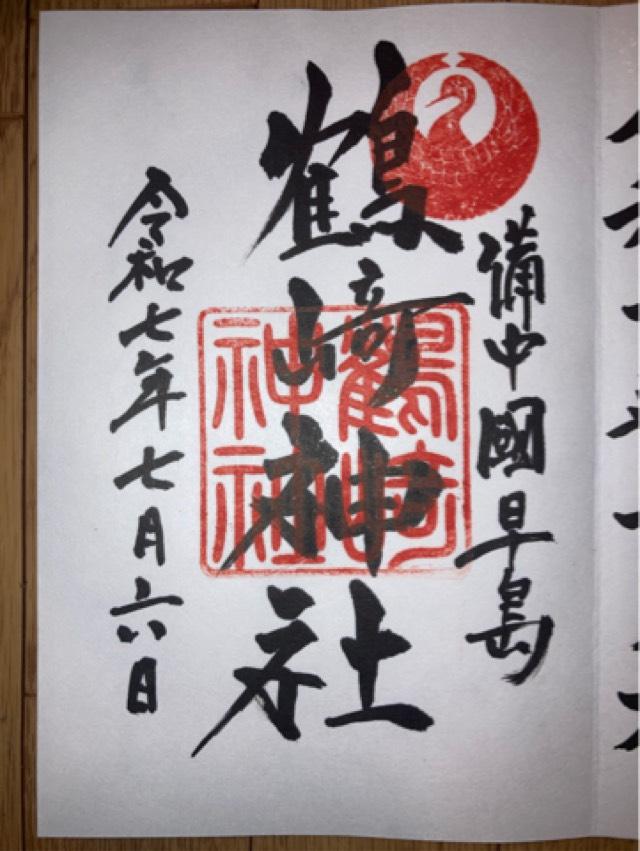 備中國早島
鶴﨑神社
令和七年七月六日
鶴崎
神社